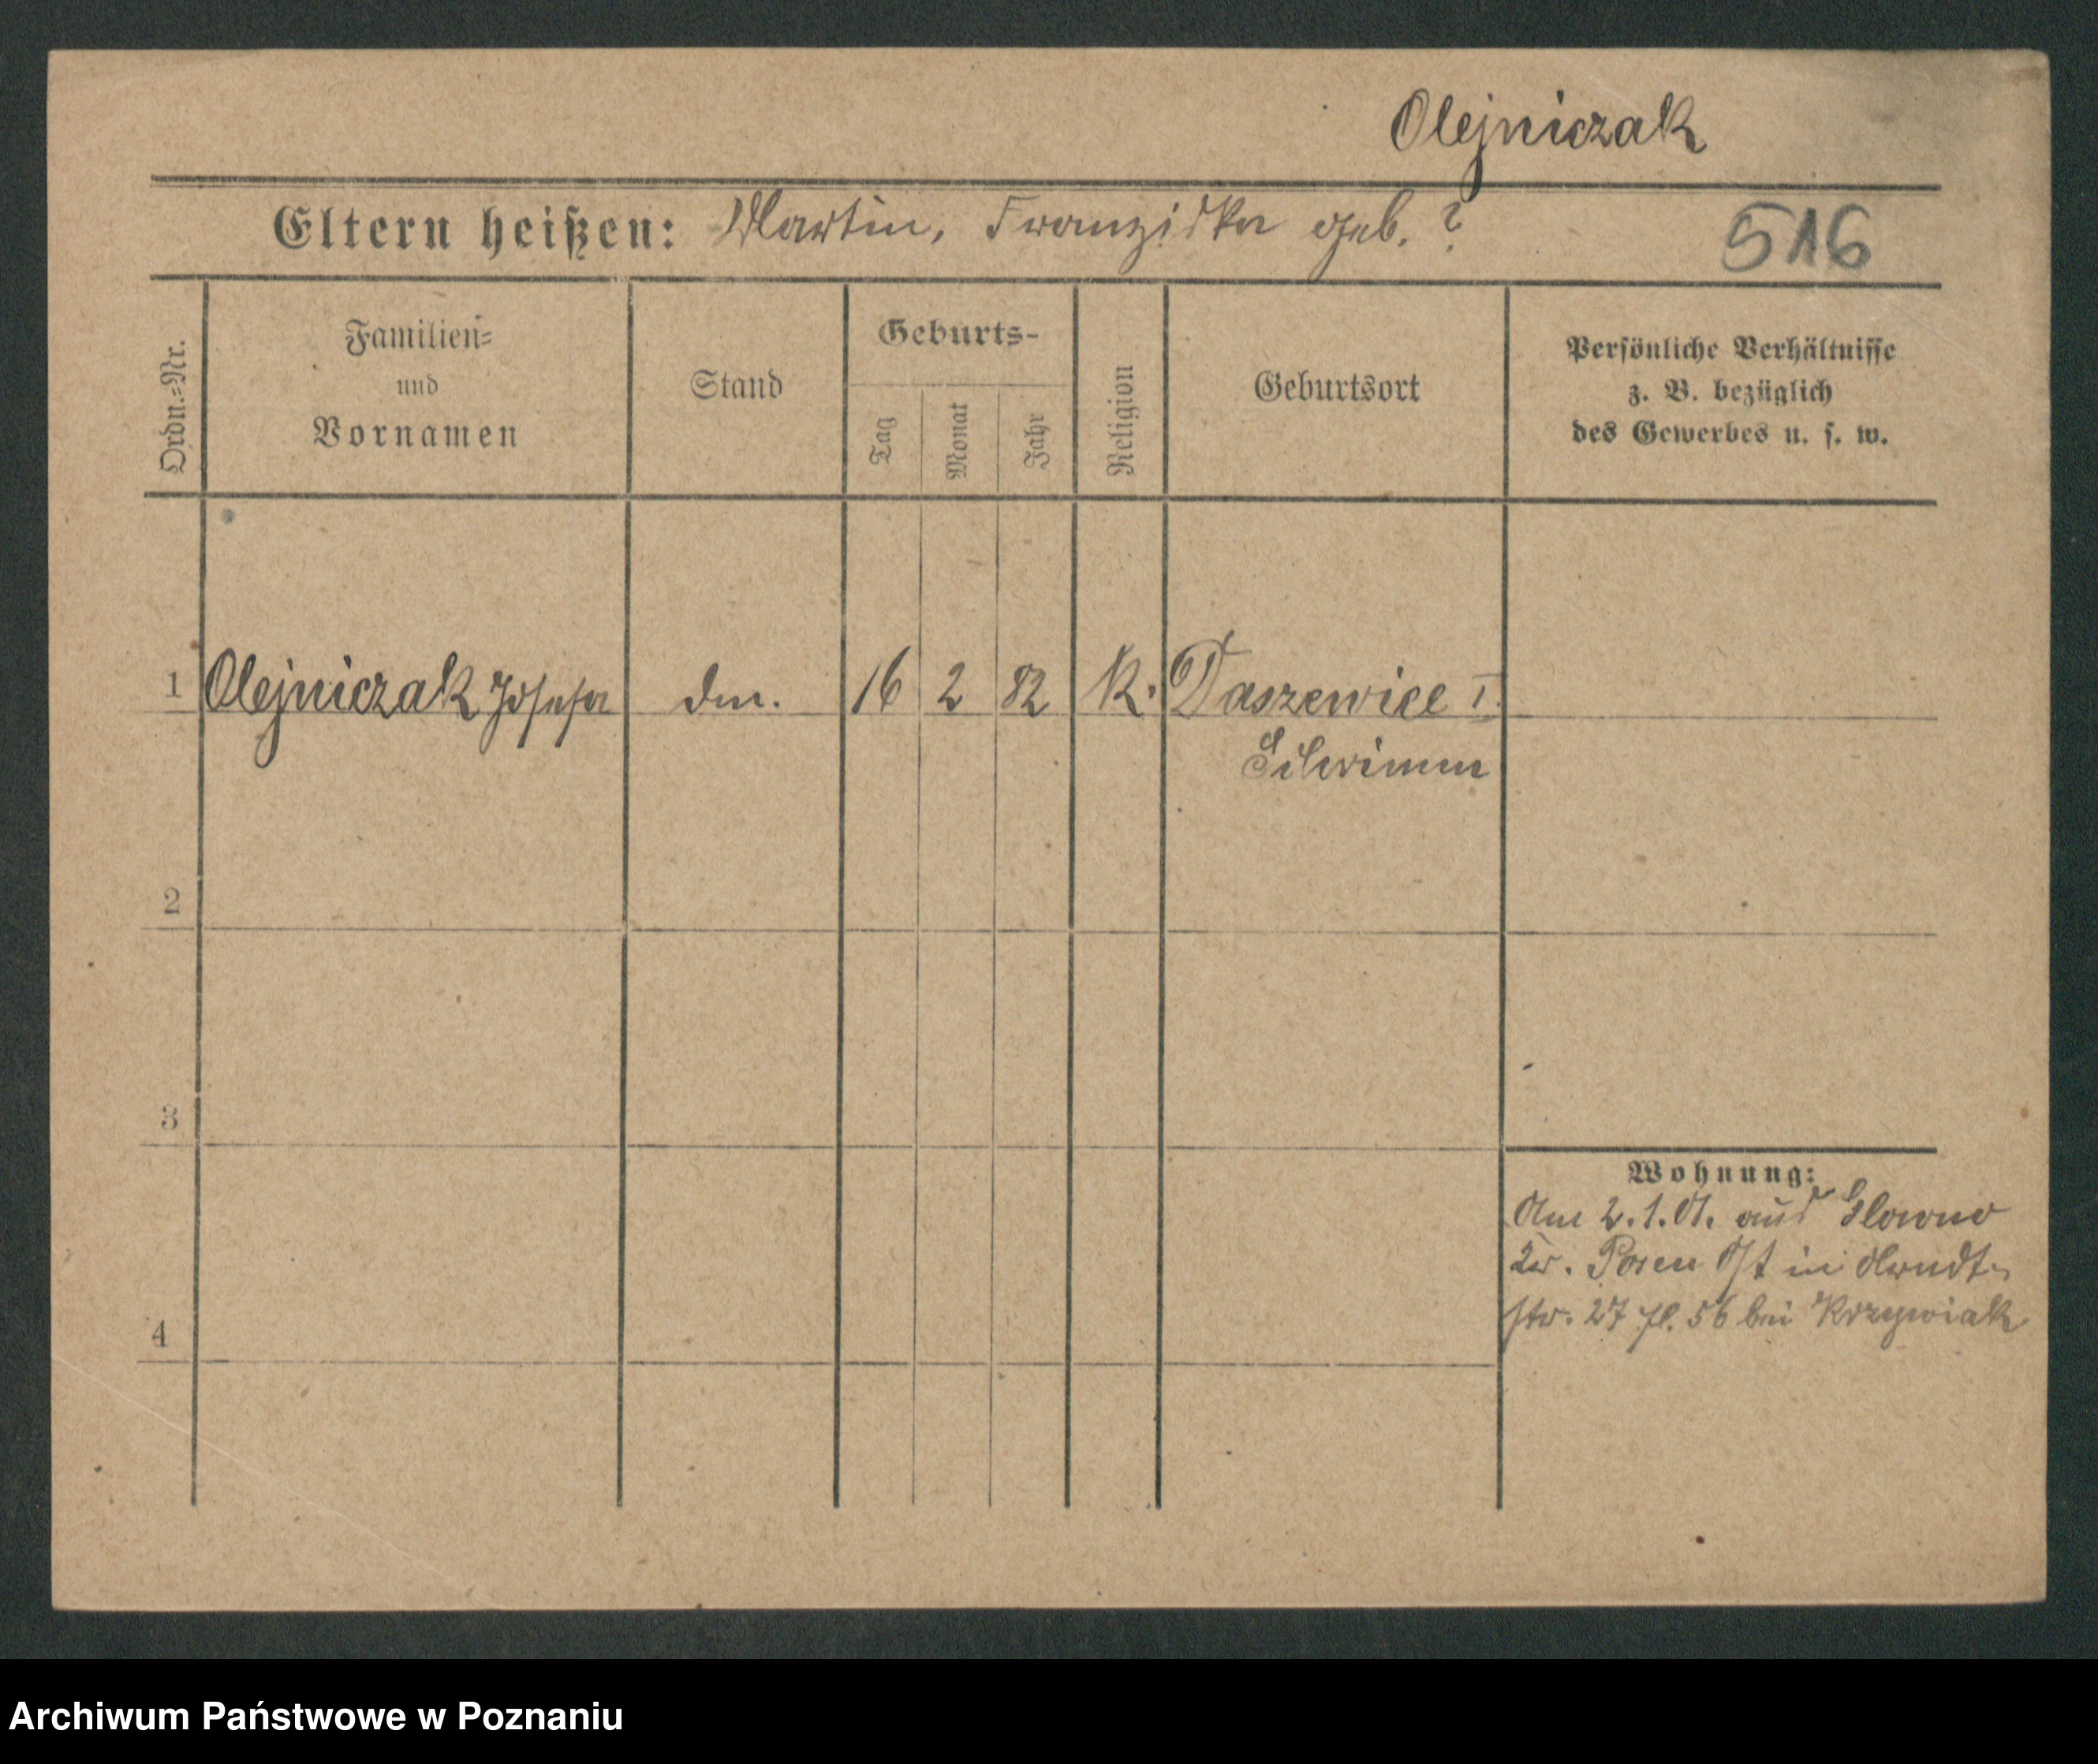 Olejniczak
Eltern heißen: Martin, Franziska geb. ?
516
Ordn.=Nr.
Familien=
und
Vornamen
Stand
Geburts-
Tag
Monat
Jahr
Religion
Geburtsort
Persönliche Verhältnisse
z. B. bezüglich
des Gewerbes u. s. w.
1 Olejniczak Josefa 16 2 82 K. Daszewice I.
Schrimm
2
3
4
Wohnung:
Am 2.1.01. aus Glowno
Kr. Posen Ost in
str. 27 bei Krzywiak
Archiwum Państwowe w Poznaniu